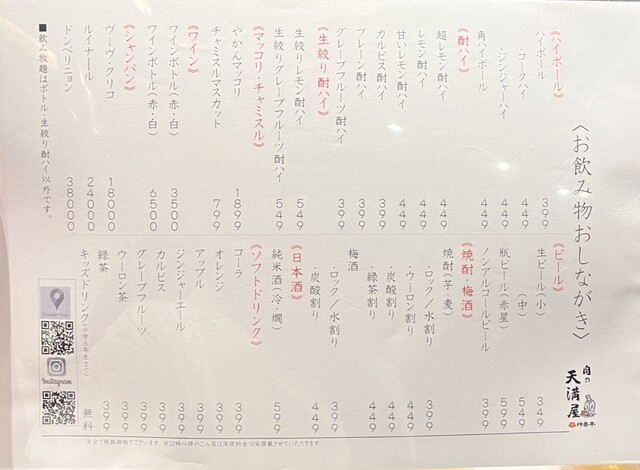 〈お飲み物おしながき〉
《ハイボール》
ハイボール 399
・コークハイ 449
・ジンジャーハイ 449
角ハイボール 449
《酎ハイ》
超レモン酎ハイ 449
レモン酎ハイ 449
甘いレモン酎ハイ 449
カルピス酎ハイ 399
プレーン酎ハイ 399
グレープフルーツ酎ハイ 399
《生絞り酎ハイ》
生絞りレモン酎ハイ 549
生絞りグレープフルーツ酎ハイ 549
《マッコリ・チャミスル》
やかんマッコリ 1899
チャミスルマスカット 799
《ワイン》
ワインボトル(赤・白) 3500
ワインボトル(赤・白) 6500
《シャンパン》
ヴーヴ・クリコ 18000
ルイナール 24000
ドンペリニョン 38000
■飲み放題はボトル・生絞り酎ハイ以外です。
《ビール》
生ビール(小) 349
(中) 549
瓶ビール(赤星) 599
ノンアルコールビール 399
《焼酎・梅酒》
焼酎(芋・麦)
・ロック/水割り 399
・ウーロン割り 449
・炭酸割り 449
・緑茶割り 449
梅酒
・ロック/水割り 399
・炭酸割り 449
《日本酒》
純米酒(冷・燗) 599
《ソフトドリンク》
コーラ 399
オレンジ 399
アップル 399
ジンジャーエール 399
カルピス 399
グレープフルーツ 399
ウーロン茶 399
緑茶 399
キッズドリンク(小学6年生まで) 無料
肉の
天満屋
Google Maps
Instagram